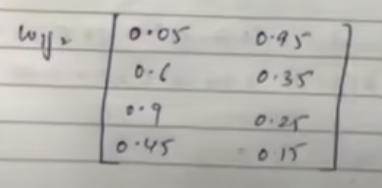 wij = 0.05 0.95
0.6 0.35
0.9 0.25
0.45 0.15